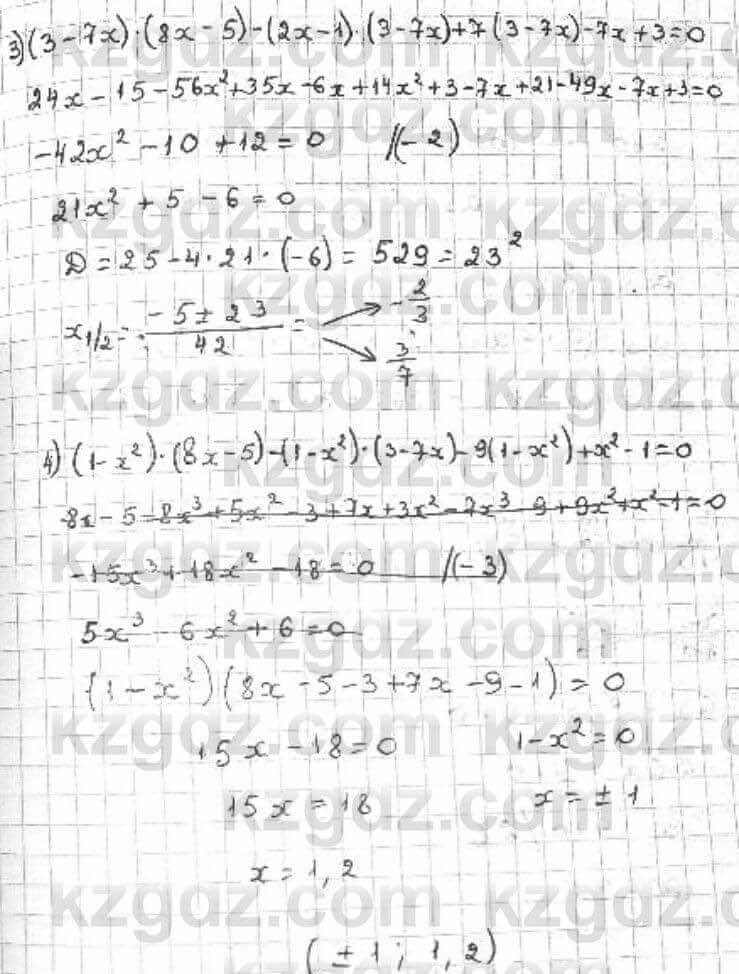 3) (3-7x)·(8x-5)-(2x-1)·(3-7x)+7(3-7x)-7x+3=0
24x-15-56x²+35x-6x+14x²+3-7x+21-49x-7x+3=0
-42x²-10+12=0 /(-2)
21x²+5-6=0
D=25-4·21·(-6)=529=23²
x1/2=(-5±23)/42= -2/3
3/7
4) (1-x²)·(8x-5)-(1-x²)·(3-7x)-9(1-x²)+x²-1=0
8x-5-8x³+5x²-3+7x+3x²-7x³-9+9x²+x²-1=0
-15x³+18x²-18=0 /(-3)
5x³-6x²+6=0
(1-x²)(8x-5-3+7x-9-1)=0
15x-18=0 1-x²=0
15x=18 x=±1
x=1,2
(±1; 1,2)
kzgdz.com